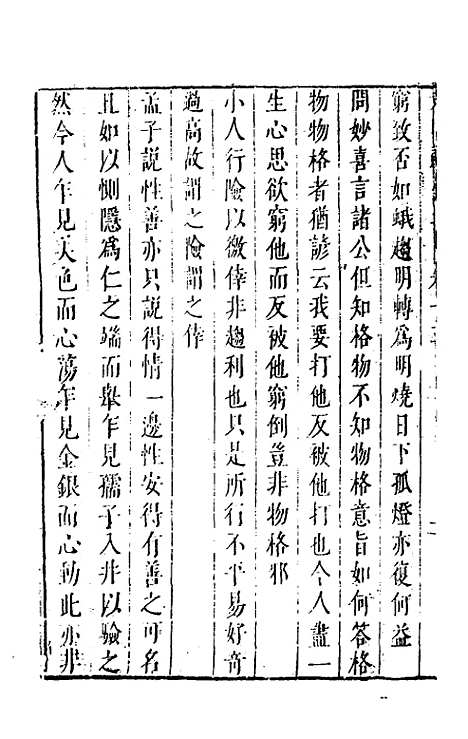 窮致否如蛾趨明轉爲明燒日下孤燈亦復何益
問妙喜言諸公但知格物不知物格意旨如何答格
物物格者猶諺云我要打他反被他打也今人盡一
生心思欲窮他而反被他窮倒豈非物格邪
小人行險以徼倖非趨利也只是所行不平易好奇
過高故謂之險謂之倖
孟子說性善亦只說得情一邊性安得有善之可名
且如以惻隱爲仁之端而舉乍見孺子入井以驗之
然今人乍見美色而心蕩乍見金銀而心動此亦非